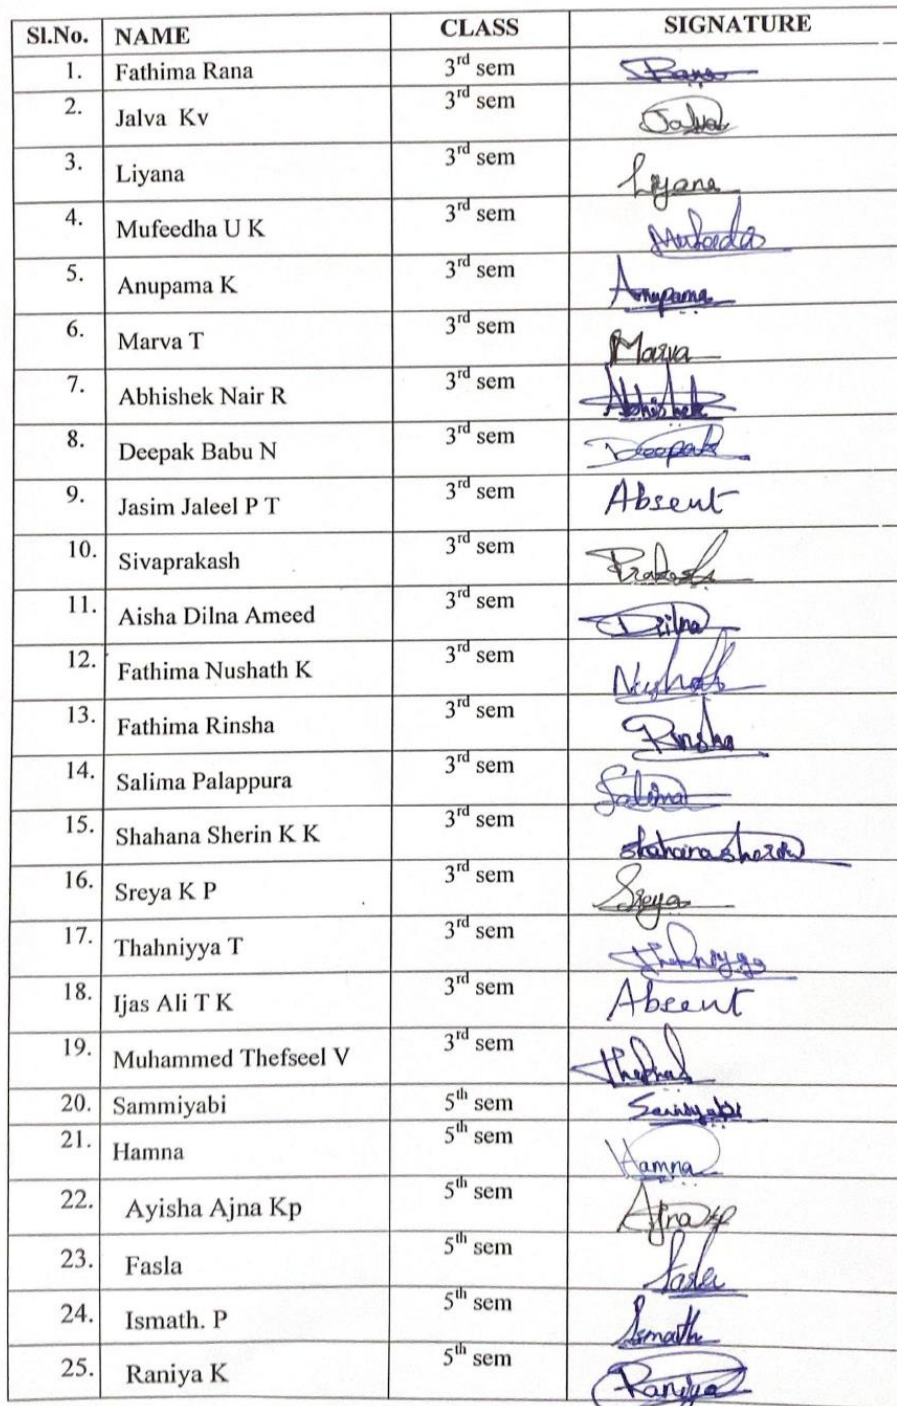 Sl.No. NAME CLASS SIGNATURE
1. Fathima Rana 3rd sem Rana
2. Jalva Kv 3rd sem Jalva
3. Liyana 3rd sem Liyana
4. Mufeedha U K 3rd sem
5. Anupama K 3rd sem Anupama
6. Marva T 3rd sem Marva
7. Abhishek Nair R 3rd sem Abhishek
8. Deepak Babu N 3rd sem Deepak
9. Jasim Jaleel P T 3rd sem Absent
10. Sivaprakash 3rd sem Prakash
11. Aisha Dilna Ameed 3rd sem Dilna
12. Fathima Nushath K 3rd sem
13. Fathima Rinsha 3rd sem Rinsha
14. Salima Palappura 3rd sem Salima
15. Shahana Sherin K K 3rd sem shahana sherin
16. Sreya K P 3rd sem Sreya
17. Thahniyya T 3rd sem
18. Ijas Ali T K 3rd sem Absent
19. Muhammed Thefseel V 3rd sem
20. Sammiyabi 5th sem
21. Hamna 5th sem Hamna
22. Ayisha Ajna Kp 5th sem Ajna kp
23. Fasla 5th sem Fasla
24. Ismath. P 5th sem Ismath
25. Raniya K 5th sem Raniya